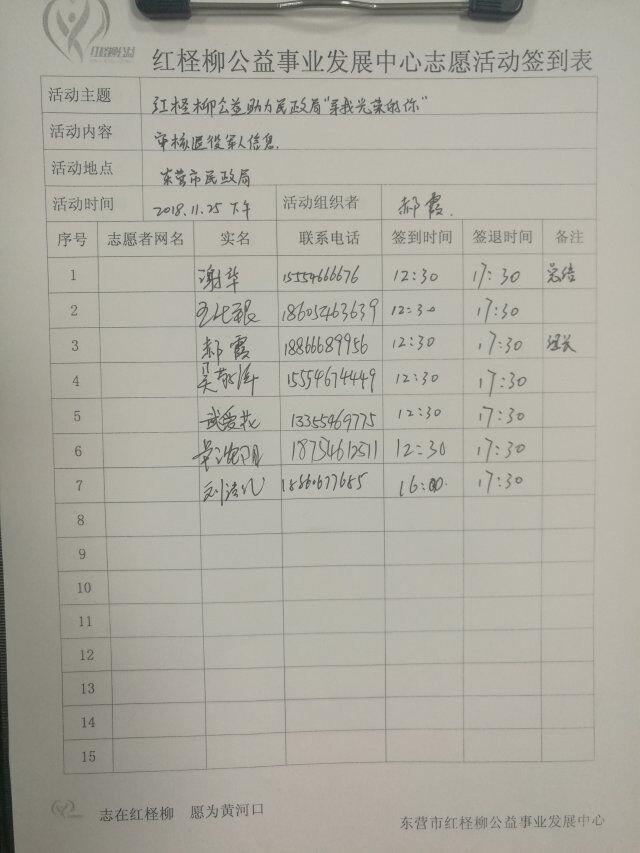 红柽柳公益事业发展中心志愿活动签到表
活动主题 红柽柳公益助力民政局"寻找光荣的你"
活动内容 审核退役军人信息.
活动地点 东营市民政局
活动时间 2018.11.25 下午 活动组织者 郝霞.
序号 志愿者网名 实名 联系电话 签到时间 签退时间 备注
1 谢华 15554666676 12:30 17:30 总结
2 18605463639 12:30 17:30
3 郝霞 18866689956 12:30 17:30 组长
4 15554674449 12:30 17:30
5 武爱花 13355469775 12:30 17:30
6 18754612511 12:30 17:30
7 刘洁 16:00 17:30
8
9
10
11
12
13
14
15
志在红柽柳 愿为黄河口
东营市红柽柳公益事业发展中心